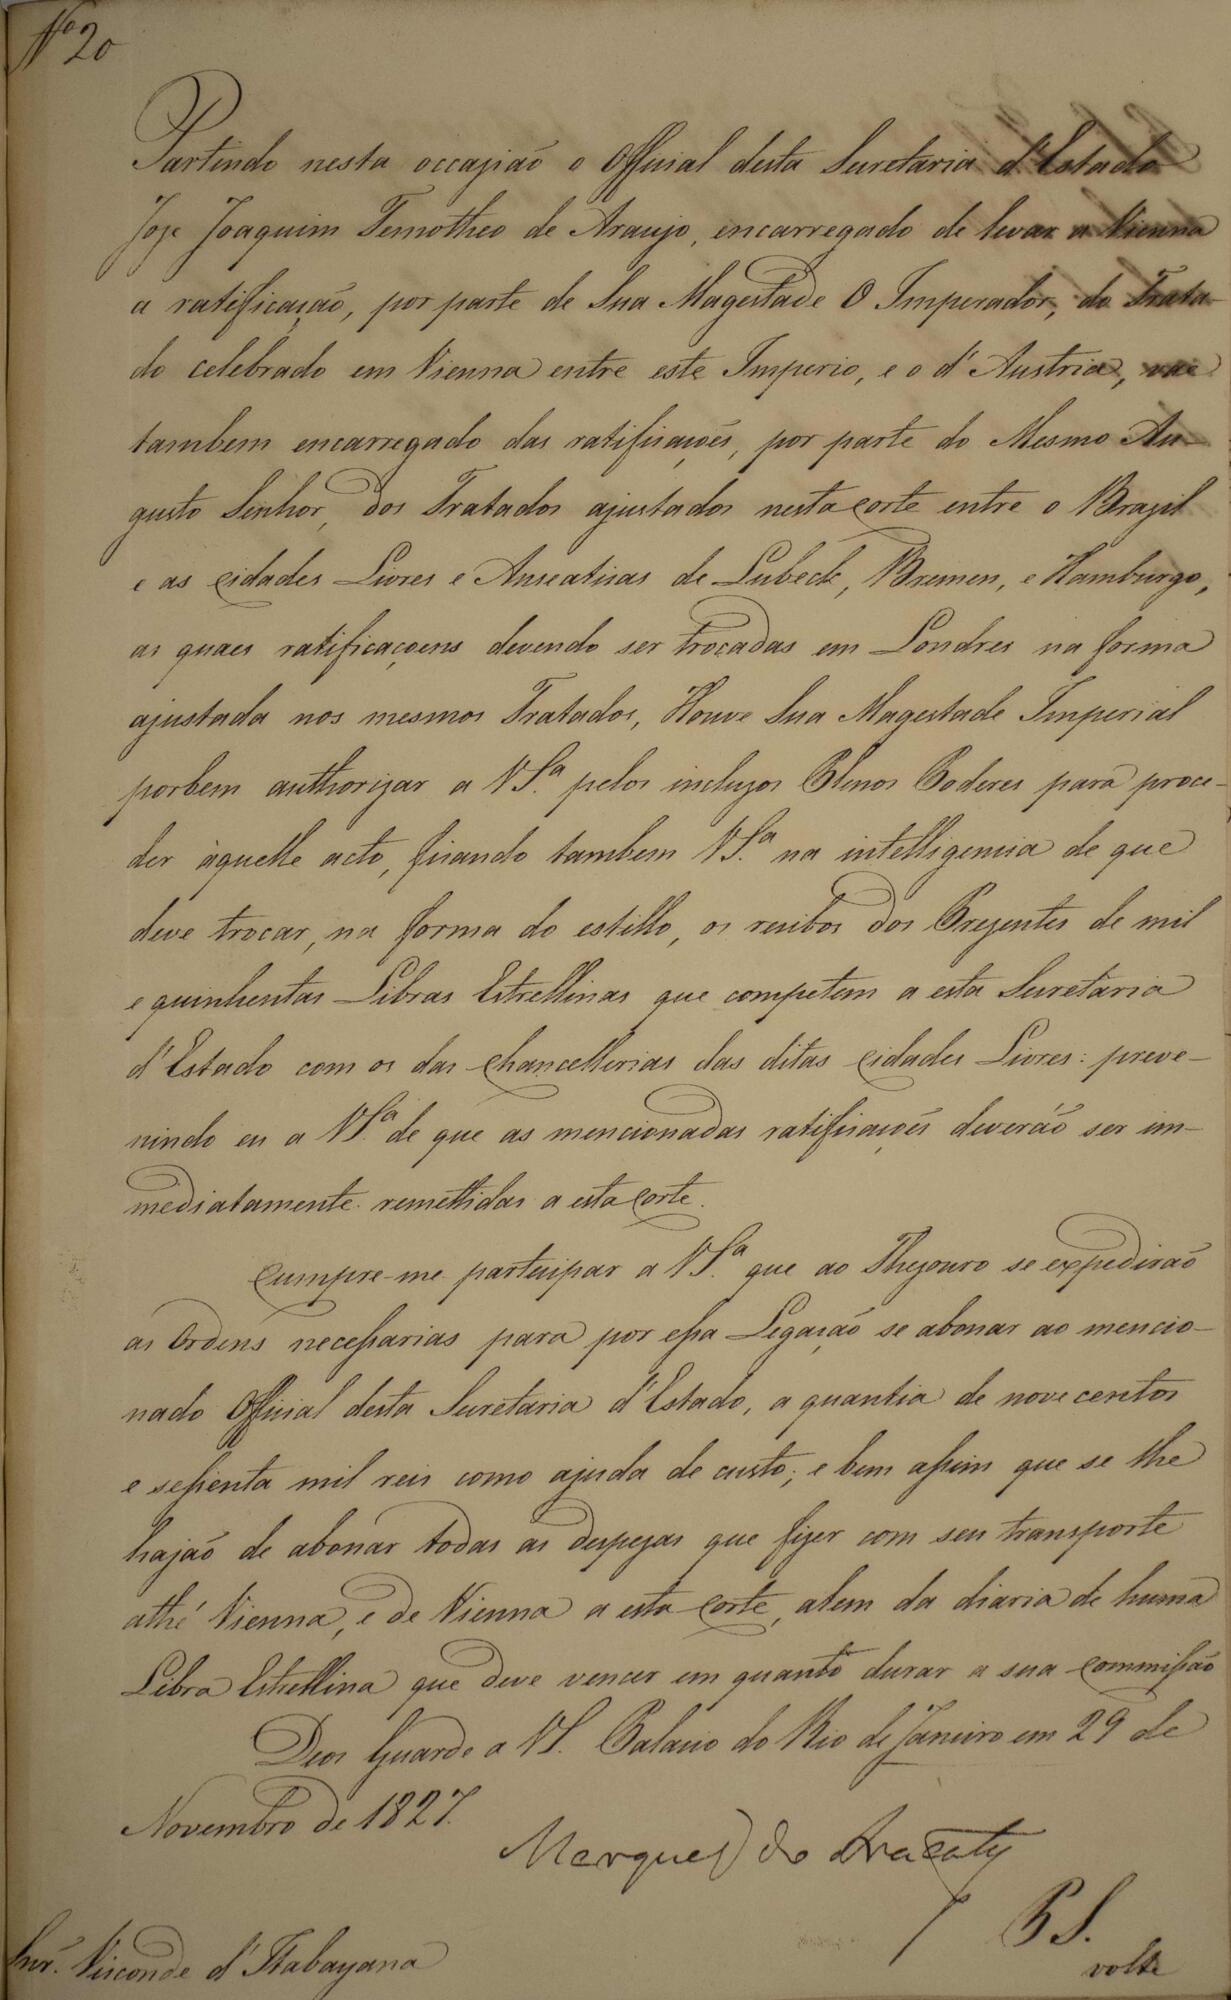 Nº 20
Partindo nesta occazião o Official desta Secretaria d'Estado
Joze Joaquim Temotheo de Araujo, encarregado de levar a Vienna
a ratificação, por parte de Sua Magestade O Imperador, do Trata-
do celebrado em Vienna entre este Imperio, e o d'Austria, vae
tambem encarregado das ratificações, por parte do Mesmo Au-
gusto Senhor, dos Tratados ajustados nesta Corte entre o Brazil
e as Cidades Livres e Anseaticas de Lubeck, Bremen, e Hamburgo,
as quaes ratificaçoens devendo ser trocadas em Londres na forma
ajustada nos mesmos Tratados, Houve Sua Magestade Imperial
porbem authorizar a VS.ª pelos incluzos Plenos Poderes para proce-
der àquelle acto, ficando tambem VS.ª na intelligencia de que
deve trocar, na forma do estillo, os recibos dos Prezentes de mil
e quinhentas Libras Estrellinas que competem a esta Secretaria
d'Estado com os das Chancellerias das ditas Cidades Livres: preve-
nindo eu a VS.ª de que as mencionadas ratificações deverão ser im-
mediatamente remettidas a esta Corte.
Cumpre-me participar a VS.ª que ao Thezouro se expedirão
as Ordens necessarias para por essa Legação se abonar ao mencio-
nado Official desta Secretaria d'Estado, a quantia de novecentos
e sessenta mil reis como ajuda de custo; e bem assim que se lhe
hajão de abonar todas as despezas que fizer com seu transporte
athé Vienna, e de Vienna a esta Corte, alem da diaria de huma
Libra Estrellina que deve vencer em quanto durar a sua Commissão
Deos Guarde a VS. Palacio do Rio de Janeiro em 29 de
Novembro de 1827.
Marquez do Aracaty
P S.
volte
Snr. Visconde d'Itabayana